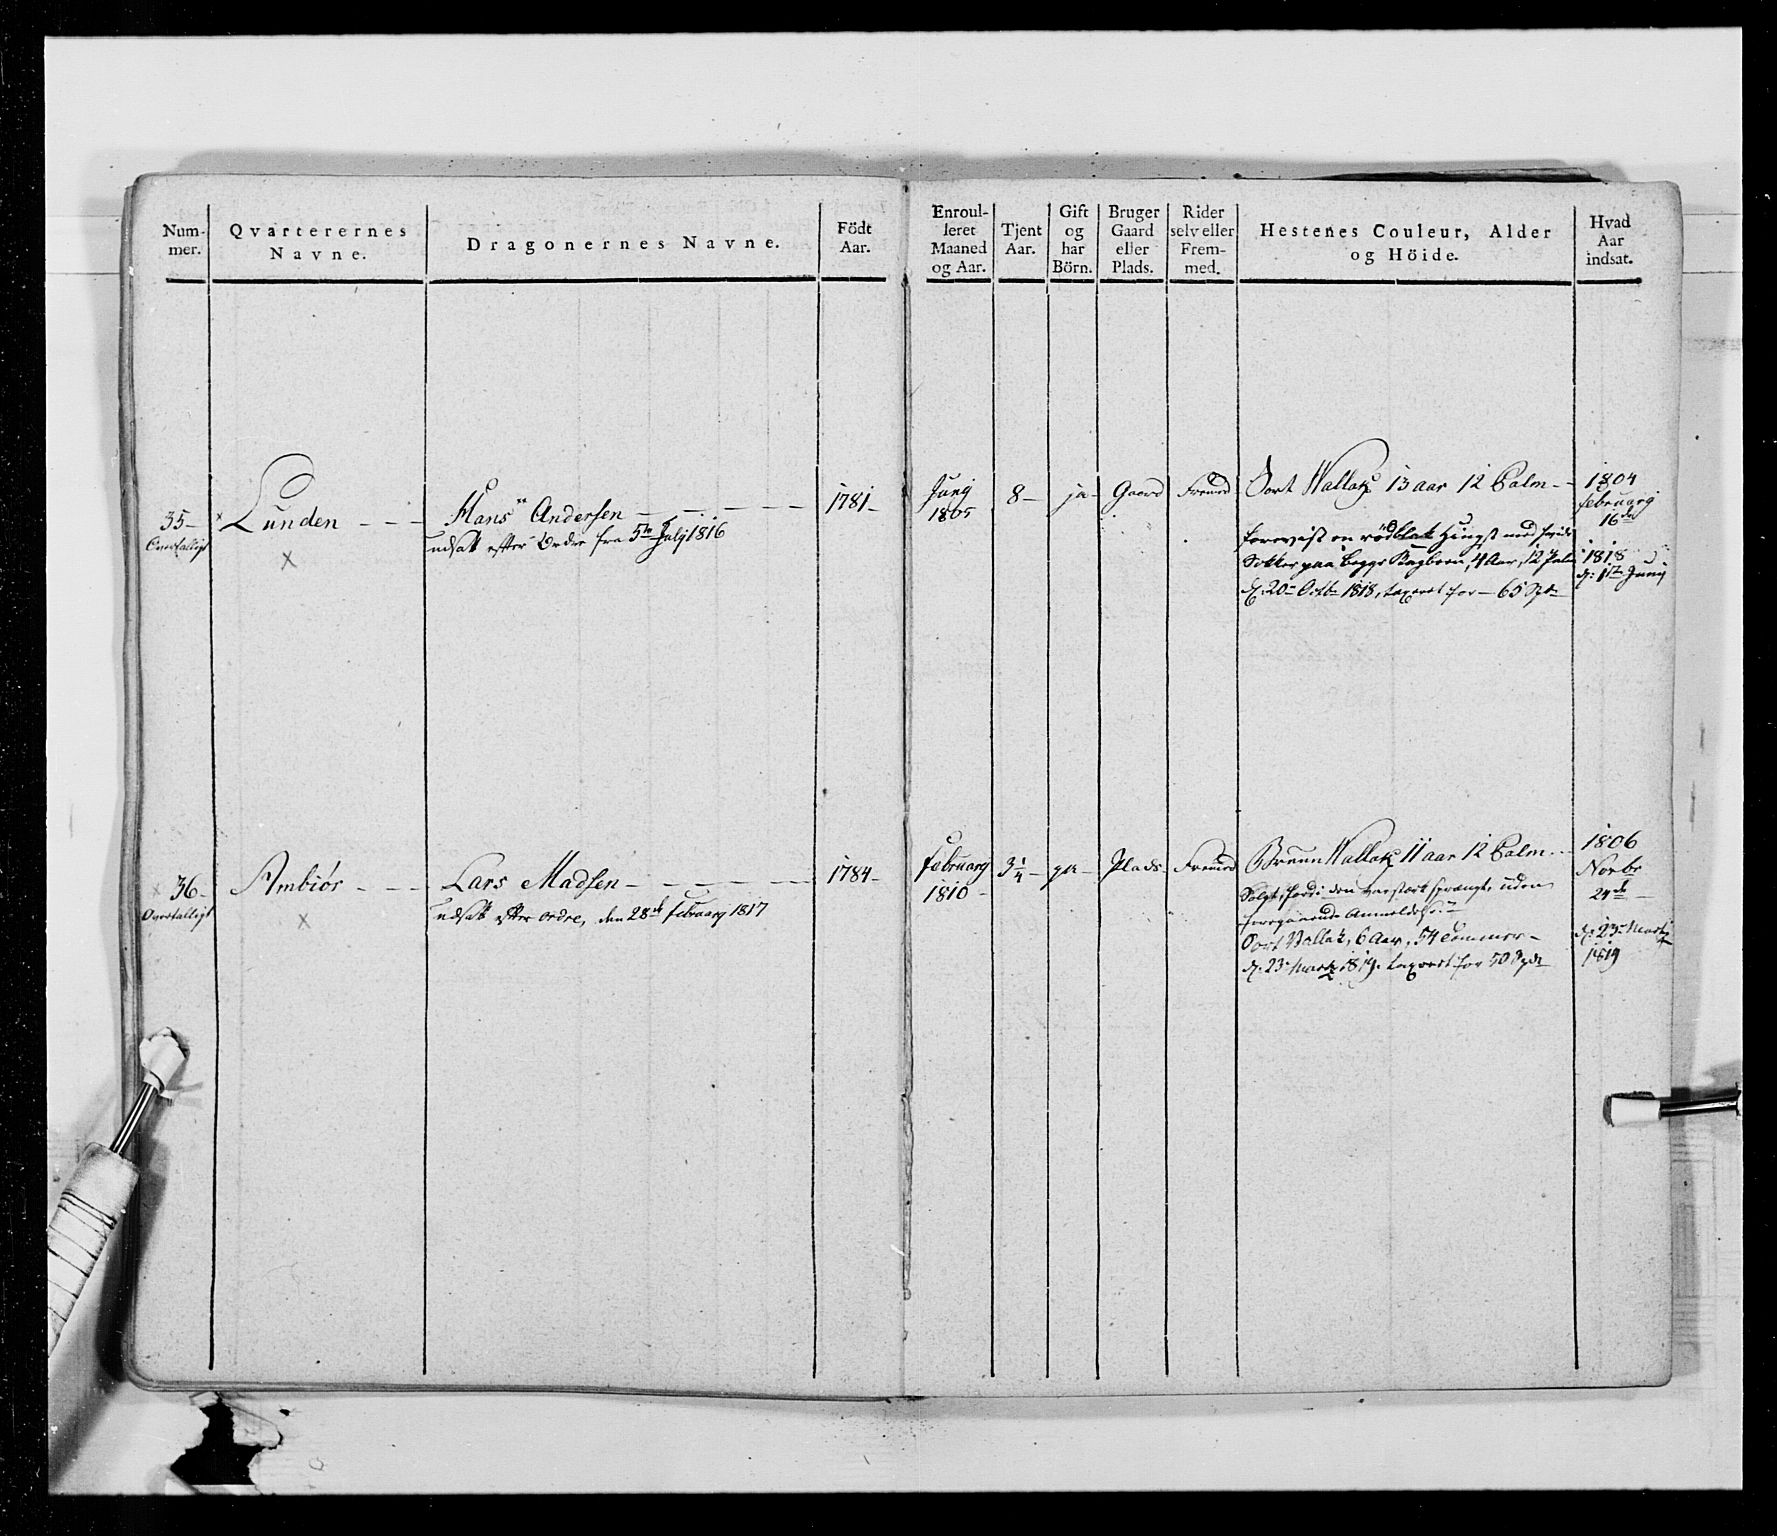 Num-
mer.
Qvarterernes
Navne.
Dragonernes Navne.
Födt
Aar.
Enroul-
leret
Maaned
og Aar.
Tjent
Aar.
Gift
og
har
Börn.
Bruger
Gaard
eller
Plads.
Rider
selv eller
Frem-
med.
Hestenes Couleur, Alder
og Höide.
Hvad
Aar
indsat.
35-
Overtallige
Lunden
Hans Andersen
udsat efter Ordre fra 5te July 1816
1781-
Junj
1805
8-
ja-
Gaard
Fremed
Sort Wallak 13 aar 12 Palm
forevist en rödblak Hingst med hvide
Sokker paa begge Bagbeen, 4 Aar, 12 Palm
d: 20de Octbr 1818, taxeret for 65 Spd
1804
februarij
16de
1818
d: 1te Junij
36-
Overtalligt
Ambiör
Lars Madsen
udsat efter ordre, den 28de februarij 1817
1784-
februarij
1810-
3 1/4
ja-
Plads
Fremed
Bruun Wallak 11 aar 12 Palm
Solgt, fordi den var stærk sprængt, uden
foregaaende Anmeldelse
Sort Vallak, 6 Aar, 54 Tommer-
d: 23de Martz 1819. taxeret for 50 Spd
1806
Novbr
24de
d: 23de Martz
1819